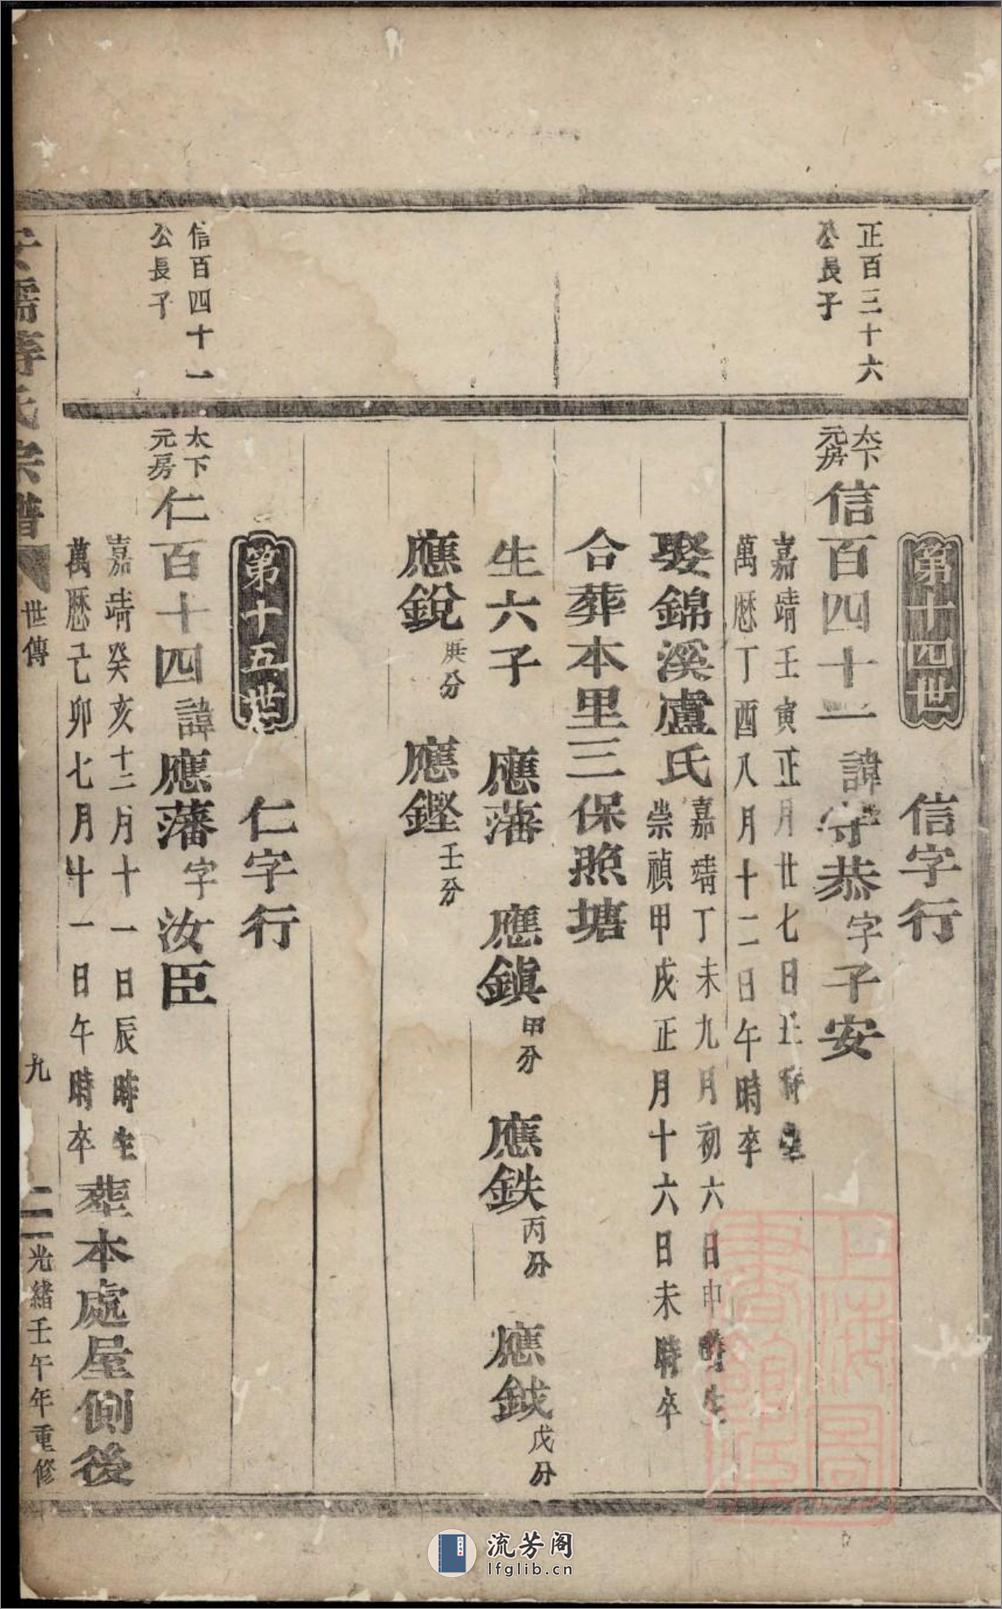 第十四世
信字行
正百三十六
公長子
太下
元房
信百四十一
諱守恭字子安
嘉靖壬寅正月廿七日丑時生
萬歷丁酉八月十二日午時卒
娶錦溪盧氏
嘉靖丁未九月初六日申時生
崇禎甲戌正月十六日未時卒
合葬本里三保照塘
生六子 應藩 應鎮甲分 應鉄丙分 應鉞戊分
應銳庚分 應鏗壬分
第十五世
仁字行
信百四十一
公長子
太下
元房
仁百十四諱應藩字汝臣
嘉靖癸亥十二月十一日辰時生
萬歷己卯七月十一日午時卒
葬本處屋側後
氏宗譜
世傳
九
光緒壬午年重修
上海圖書館藏
流芳阁
lfglib.cn